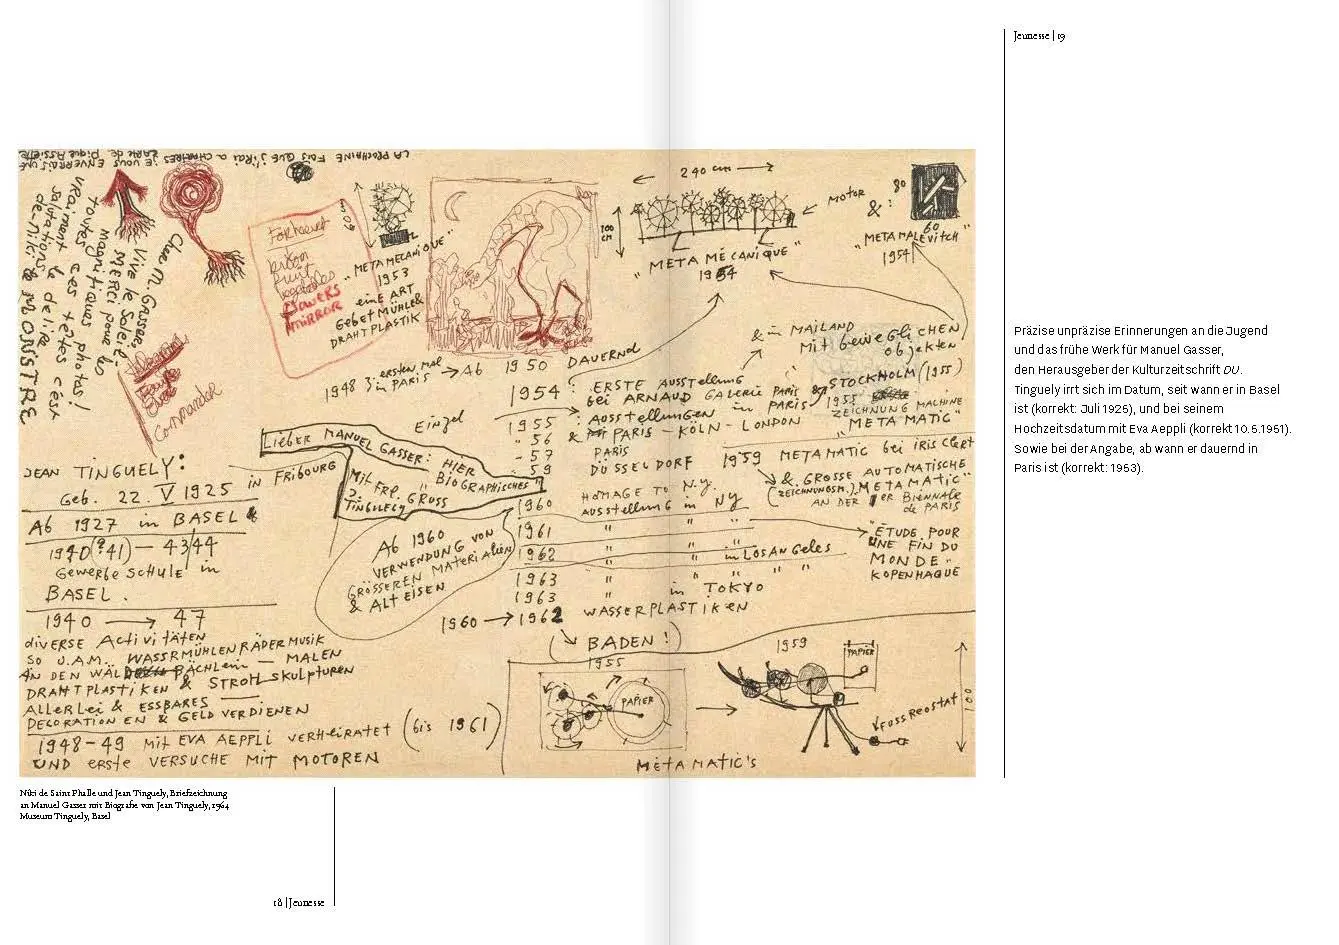 Jeunesse | 19
LA PROCHAINE FOIS QUE J'IRAI A CHARTRES
JE VOUS ENVERRAIS UNE
CARTE de Pique Assiette
Cher M. Gasser
Vive le Soleil
MERCI pour les
magnifiques photos!
toutes ces têtes c'est
vraiment le delire
salutations
de-niki le MONSTRE
flowers
MIRROR
60 cm
"META MECANIQUE"
1953
eine ART
Gebet MÜHLE &
DRAHTPLASTIK
240 cm
100 CM
MOTOR
"META MÉCANIQUE"
1954
& :
80
60
"META MALEVITCH"
1954
1948 ersten mal in PARIS → Ab 1950 DAUERND
& in MAILAND
Mit beweglichen
objekten
Einzel
1954 : ERSTE AUSSTELLUNG
bei ARNAUD GALERIE PARIS
& STOCKHOLM (1955)
1955
" 56
- 57
" 59
AUSSTELLUNGEN in PARIS
& PARIS - KÖLN - LONDON
PARIS
DÜSSELDORF
1955
ZEICHNUNG MACHINE
"META MATIC"
1959 METAMATIC bei IRIS Clert
& GROSSE AUTOMATISCHE
(ZEICHNUNGSM.) "METAMATIC"
AN DER 1er BIENNALE
de PARIS
LIEBER MANUEL GASSER: HIER
" BIOGRAPHISCHES "
Mit FRD. GRUSS
J. TINGUELY
JEAN TINGUELY:
Geb. 22. V 1925 in FRIBOURG
Ab 1927 in BASEL &
1940(?41) - 43/44
GEWERBE SCHULE in
BASEL.
1940 → 47
diverse Activitäten
so U.A.M. WASSRMÜHLENRÄDER MUSIK
AN DEN WÄLD BÄCHLEIN - MALEN
DRAHTPLASTIKEN & STROH SKULPTUREN
ALLERLEI & ESSBARES
DECORATIONEN & GELD VERDIENEN
1948-49 mit EVA AEPPLI VERHEIRATET (bis 1961)
UND erste VERSUCHE MIT MOTOREN
Ab 1960
VERWENDUNG VON
GRÖSSEREN MATERIALIEN
& ALTEISEN
1960 HOMAGE TO N.Y.
AUSSTELLUNG in NY
1961 " " "
1962 " " in LOS ANGELES
1963 " " " "
1963 " in TOKYO
1960 → 1962 WASSERPLASTIKEN
"ETUDE POUR
UNE FIN DU
MONDE"
KOPENHAGUE
( ↘ BADEN! )
1955
PAPIER
1959
PAPIER
FUSSREOSTAT
100
MÉTAMATIC'S
Präzise unpräzise Erinnerungen an die Jugend
und das frühe Werk für Manuel Gasser,
den Herausgeber der Kulturzeitschrift DU.
Tinguely irrt sich im Datum, seit wann er in Basel
ist (korrekt: Juli 1925), und bei seinem
Hochzeitsdatum mit Eva Aeppli (korrekt 10.5.1951).
Sowie bei der Angabe, ab wann er dauernd in
Paris ist (korrekt: 1953).
Niki de Saint Phalle und Jean Tinguely, Briefzeichnung
an Manuel Gasser mit Biografie von Jean Tinguely, 1964
Museum Tinguely, Basel
18 | Jeunesse